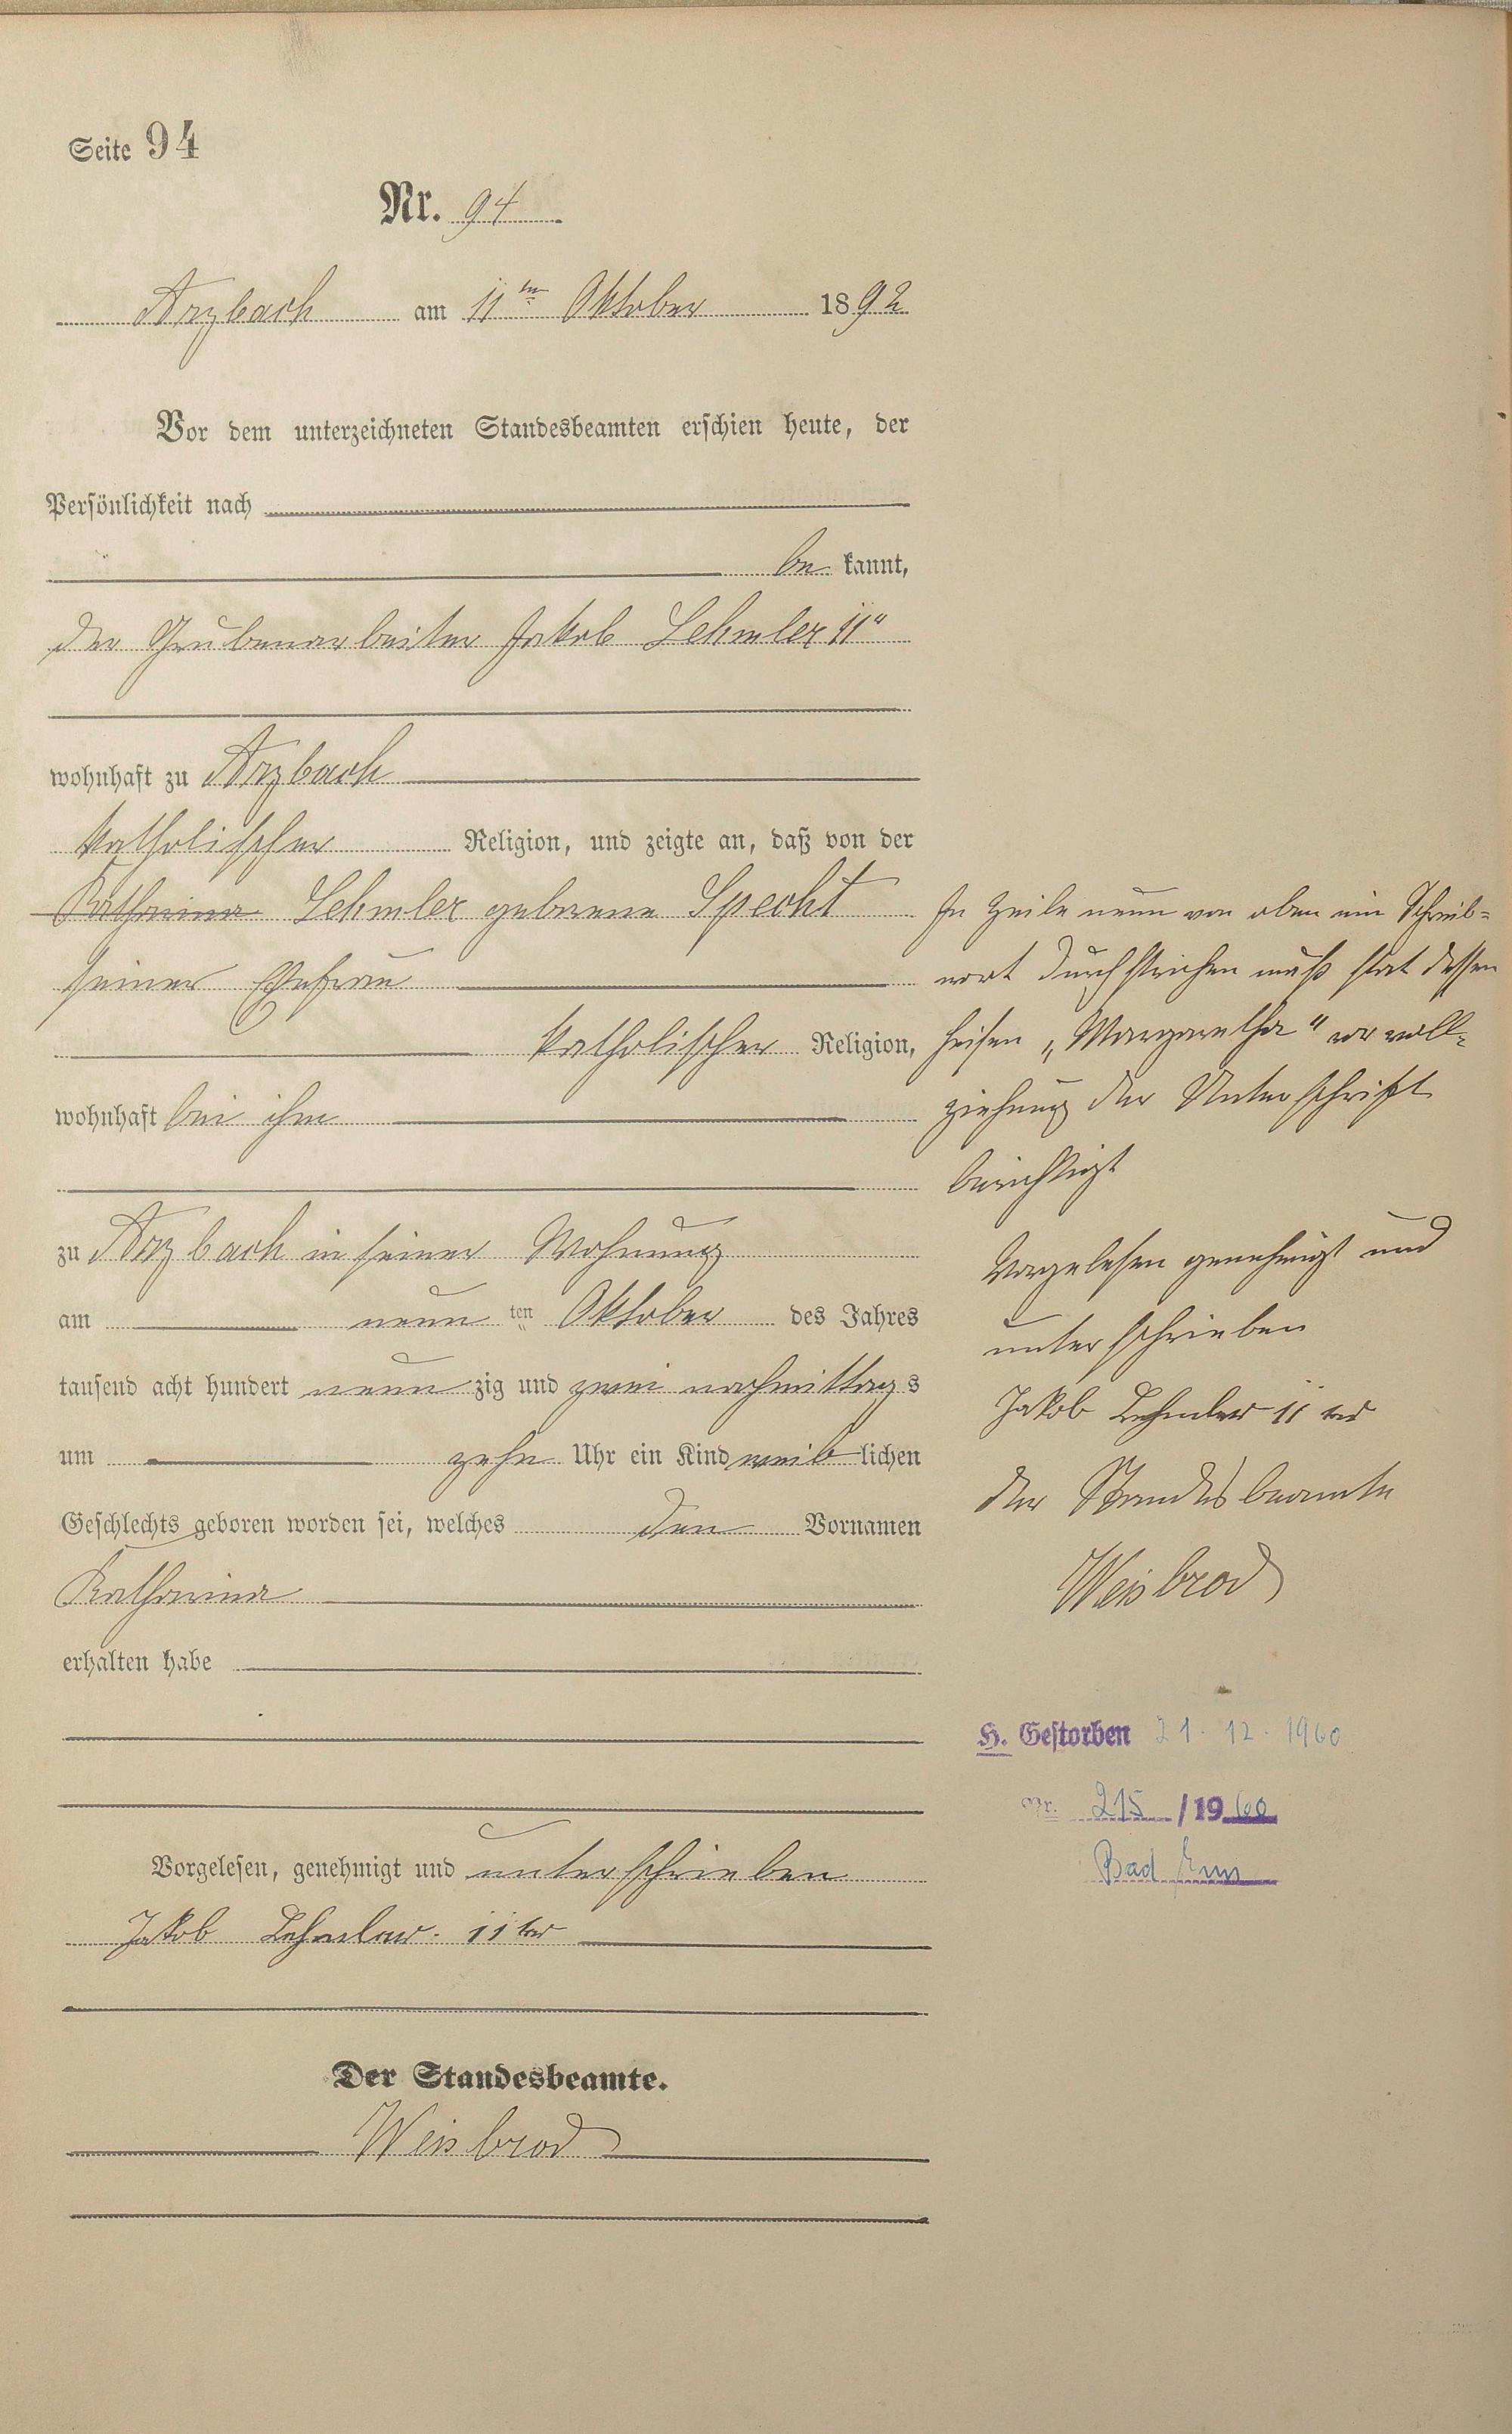 Seite 94
Nr. 94
Arzbach am 11ten Oktober 1892
Vor dem unterzeichneten Standesbeamten erschien heute, der
Persönlichkeit nach
be kannt,
der Grubenarbeiter Jakob Lehmler II"
wohnhaft zu Arzbach
katholischer Religion, und zeigte an, daß von der
Katharina Lehmler geborene Specht
seiner Ehefrau
katholischer Religion,
wohnhaft bei ihm
zu Arzbach in seiner Wohnung
am neun ten Oktober des Jahres
tausend acht hundert neun zig und zwei nachmittags
um zehn Uhr ein Kind weib lichen
Geschlechts geboren worden sei, welches den Vornamen
Katharina
erhalten habe
Vorgelesen, genehmigt und unterschrieben
Jakob Lehmler. II ter
Der Standesbeamte.
Weisbrod
In Zeile neun von oben ein Schreib-
wort durchstrichen muß stat dessen
heisen „Margaretha" vor voll-
ziehung der Unterschrift
berichtigt
Vorgelesen genehmigt und
unterschrieben
Jakob Lehmler II ter
der Standesbeamte
Weisbrod
H. Gestorben 21.12.1960
Nr. 215 /1960
Bad Ems